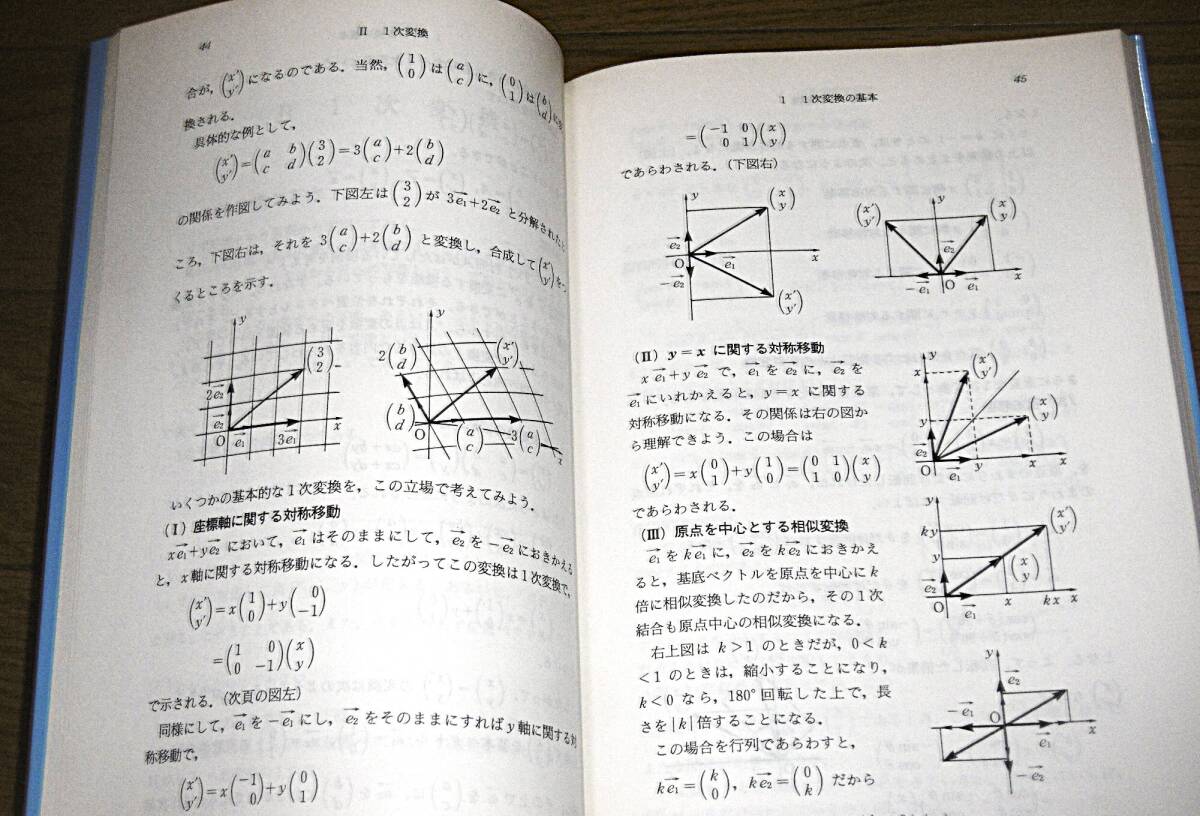 44
II 1次変換
合が,(x′ y′)になるのである.当然,(1 0)は(a c)に,(0 1)は(b d)
換される.
具体的な例として,
(x′ y′)=(a b c d)(3 2)=3(a c)+2(b d)
の関係を作図してみよう.下図左は(3 2)が 3e₁+2e₂ と分解された
ころ,下図右は,それを 3(a c)+2(b d) と変換し,合成して(x′ y′)を
くるところを示す.
y
(3 2)
2e₂
e₂
O
e₁
3e₁
x
y
2(b d)
(x′ y′)
(b d)
O
(a c)
3(a c)
x
いくつかの基本的な1次変換を,この立場で考えてみよう.
(I) 座標軸に関する対称移動
xe₁+ye₂ において,e₁ はそのままにして,e₂ を −e₂ におきかえる
と,x軸に関する対称移動になる.したがってこの変換は1次変換で,
(x′ y′)=x(1 0)+y(0 −1)
=(1 0 0 −1)(x y)
で示される.(次頁の図左)
同様にして,e₁ を −e₁ にし,e₂ をそのままにすればy軸に関する対
称移動で,
(x′ y′)=x(−1 0)+y(0 1)
1 1次変換の基本
45
=(−1 0 0 1)(x y)
であらわされる.(下図右)
y
(x y)
e₂
O
e₁
x
−e₂
(x′ y′)
y
(x′ y′)
(x y)
e₂
−e₁
O
e₁
x
(II) y=x に関する対称移動
x e₁+y e₂ で,e₁ を e₂ に,e₂ を
e₁ にいれかえると,y=x に関する
対称移動になる.その関係は右の図か
ら理解できよう.この場合は
(x′ y′)=x(0 1)+y(1 0)=(0 1 1 0)(x y)
であらわされる.
y
x
(x′ y′)
y
(x y)
e₂
O
e₁
y
x
x
(III) 原点を中心とする相似変換
e₁ を ke₁ に,e₂ を ke₂ におきかえ
ると,基底ベクトルを原点を中心に k
倍に相似変換したのだから,その1次
結合も原点中心の相似変換になる.
右上図は k>1 のときだが,0<k
<1 のときは,縮小することになり,
k<0 なら,180°回転した上で,長
さを |k| 倍することになる.
この場合を行列であらわすと,
ke₁=(k 0), ke₂=(0 k) だから
y
ky
(x′ y′)
y
(x y)
e₂
O
e₁
x
kx
x
y
e₂
−e₁
O
e₁
x
−e₂